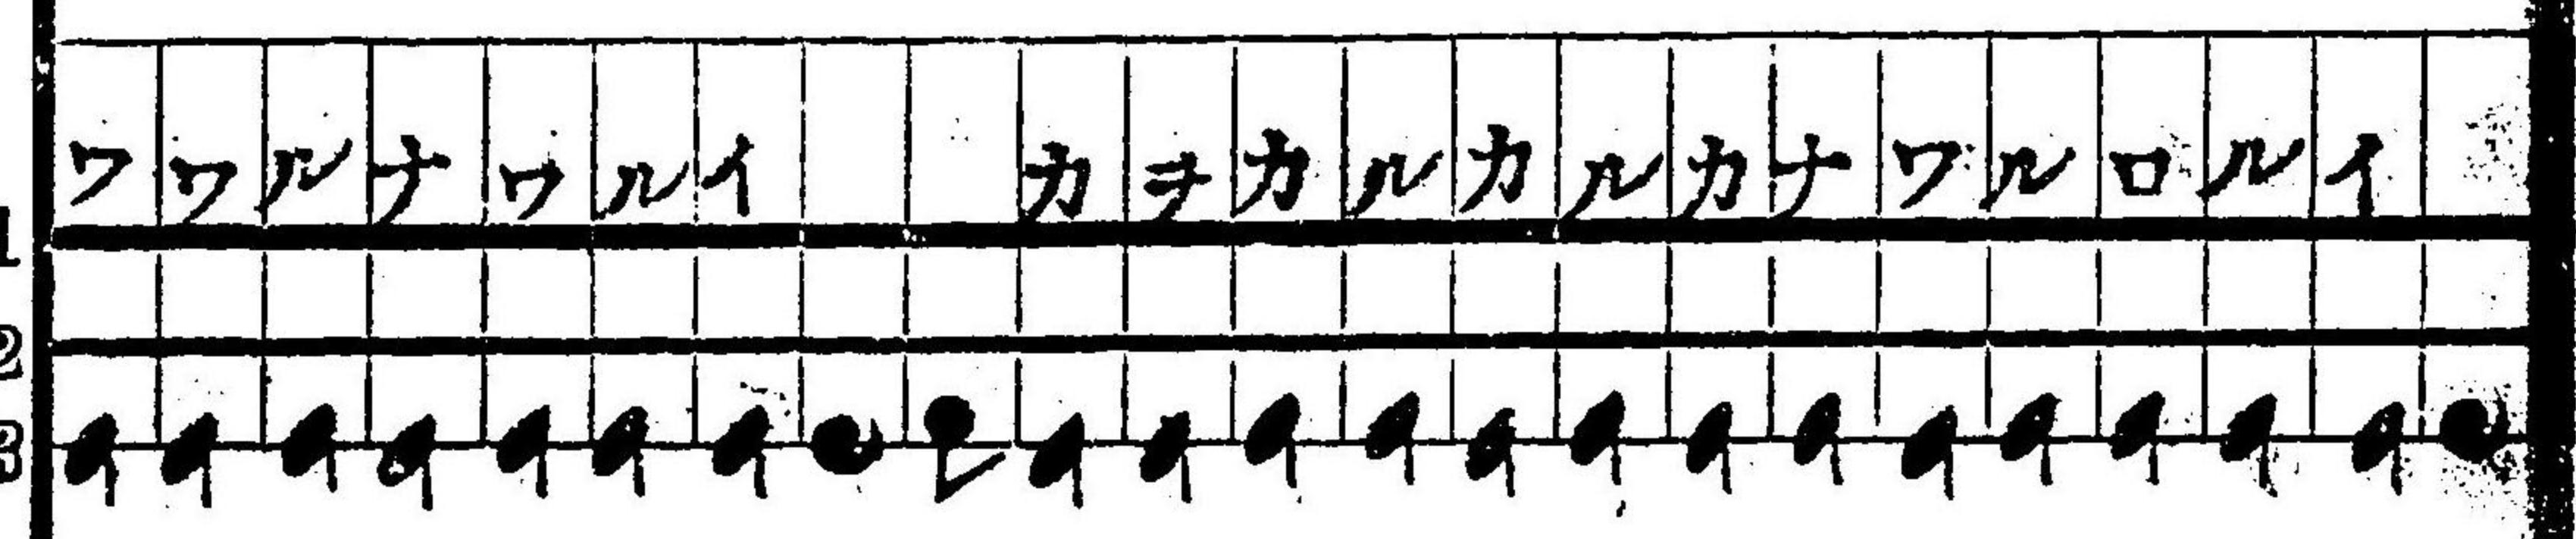 ワワルナワルイ カヲカルカルカナワルロルイ
1
2
3